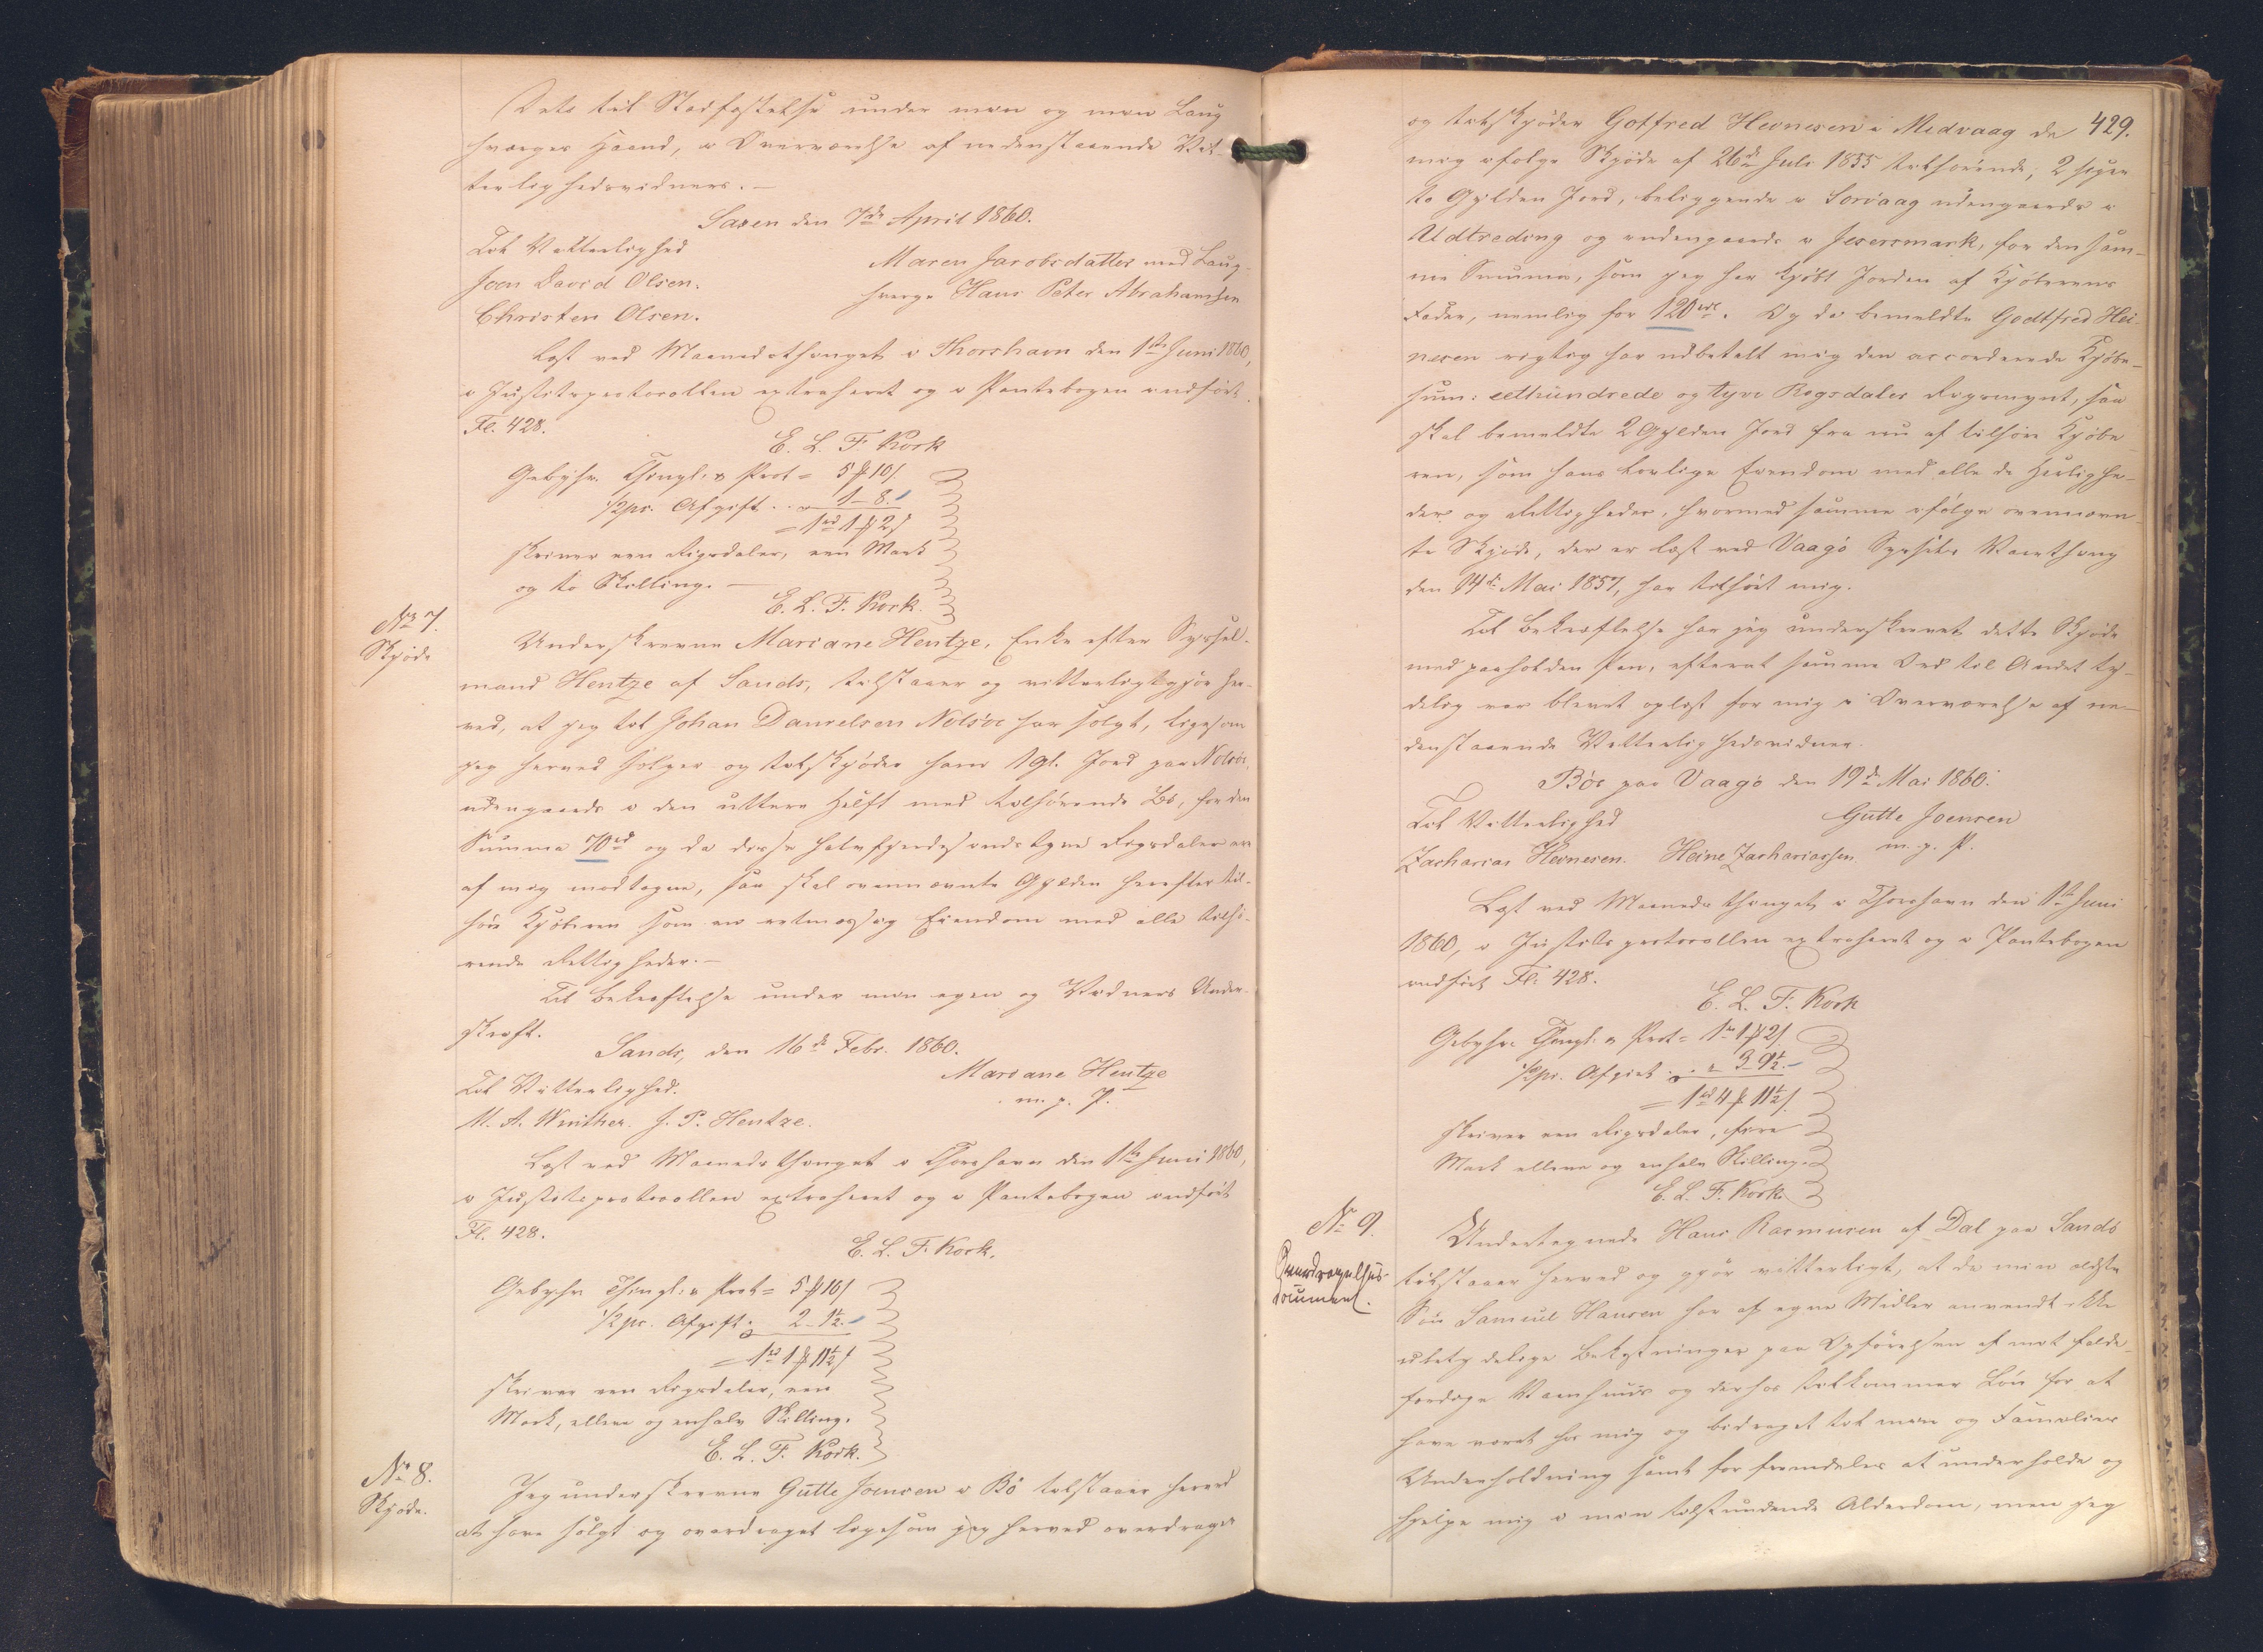 Dets til Stadfæstelse under min og min Laug
hværges Haand, i Overværelse af nedenstaaende Vit-
terlighedsvidner.—
Saxen den 7de April 1860.
Til Vitterlighed
Maren Jacobsdatter med Laug-
Joen David Olsen.
hværge Hans Peter Abrahamsen
Christen Olsen.
Læst ved Maanedsthinget i Thorshavn den 1ste Juni 1860,
i Justitsprotocollen extraheret og i Pantebogen indført
Fl. 428.
E. L. F. Kock
Gebyhr. Thingl. & Prot = 5 ₰ 10 s
½ pc. Afgift . . " 1 — 8.
= 1 rd 1 ₰ 2 s
skriver een Rigsdaler, een Mark
og to Skilling.—
E. L. F. Kock.
No 7.
Skjøde
Underskrevne Mariane Hentze, Enke efter Syssel-
mand Hentze af Sands, tilstaaer og vitterligtgjør her-
ved, at jeg til Johan Danielsen Nolsøe har solgt, ligesom
jeg herved sælger og tilskjøder ham 1 gl. Jord paa Nolsøe,
udengaards i den uttere Helft med tilhørende Bø, for den
Summa 70 rd og da disse halvfjerdesindstyve Rigsdaler er
af mig modtagne, saa skal ovennævnte Gylden herefter til-
høre Kjøberen som en retmæssig Eiendom med alle tilhø-
rende Rettigheder.—
Til Bekræftelse under min egen og Vidners Under-
skrift.
Sands, den 16de Febr. 1860.
Mariane Hentze
Til Vitterlighed.
m. p. P.
M. A. Winther. J. P. Hentze.
Læst ved Maanedsthinget i Thorshavn den 1ste Juni 1860,
i Justitsprotocollen extraheret og i Pantebogen indført
Fl. 428.
E. L. F. Kock.
Gebyhr Thingl. & Prot = 5 ₰ 10 s
½ pc. Afgift " 2 — 1½ —
= 1 rd 1 ₰ 11½ s
skriver een Rigsdaler, een
Mark, elleve og enhalv Skilling.
E. L. F. Kock.
No 8.
Skjøde.
Jeg underskrevne Gutte Joensen i Bø tilstaaer herved
at have solgt og overdraget ligesom jeg herved overdrager
429.
og tilskjøder Gotfred Heinesen i Midvaag de
mig ifølge Skjøde af 26de Juli 1855 tilhørende, 2 siger
to Gylden Jord, beliggende i Sorvaag udengaards i
Udtreding og indengaards i Jesersmark, for den sam-
me Summa, som jeg har kjøbt Jorden af Kjøberens
Fader, nemlig for 120 rd. Og da bemeldte Godtfred Hei-
nesen rigtig har udbetalt mig den accorderede Kjøbe-
sum: eethundrede og tyve Rigsdaler Rigsmynt, saa
skal bemeldte 2 Gylden Jord fra nu af tilhøre Kjøbe
ren, som hans lovlige Eiendom med alle de Herlighe-
der og Rettigheder, hvormed samme ifølge ovennævn-
te Skjøde, der er læst ved Vaagø Syssels Vaarthing
den 14de Mai 1857, har tilhørt mig.
Til Bekræftelse har jeg underskrevet dette Skjøde
med paaholden Pen, efterat samme Ord til Andet ty-
delig var blevet oplæst for mig i Overværelse af ne-
denstaaende Vitterlighedsvidner.
Bøe paa Vaagø den 19de Mai 1860.
Til Vitterlighed
Gutte Joensen
Zacharias Heinesen. Heine Zachariassen
m. p. P.
Læst ved Maanedsthinget i Thorshavn den 1ste Juni
1860, i Justitsprotocollen extraheret og i Pantebogen
indført Fl. 428.
E. L. F. Kock
Gebyhr. Thingl. & Prot = 1 rd 1 ₰ 2 s
½ pc. Afgift . . " 3 — 9½ —
= 1 rd 4 ₰ 11½ s
skriver een Rigsdaler, fire
Mark elleve og enhalv Skilling.
E. L. F. Kock.
No 9.
Overdragelses-
document.
Undertegnede Hans Rasmusen af Dal paa Sandø
tilstaaer herved og gjør vitterligt, at da min ældste
Søn Samuel Hansen har af egne Midler anvendt ikke
ubetydelige Bekostninger paa Opførelsen af mit falde-
færdige Vaanhuus og derhos tilkommer Løn for at
have været hos mig og bidraget til min og Familiens
Underholdning samt for fremdeles at underholde og
hjelpe mig i min tilstundende Alderdom, men jeg